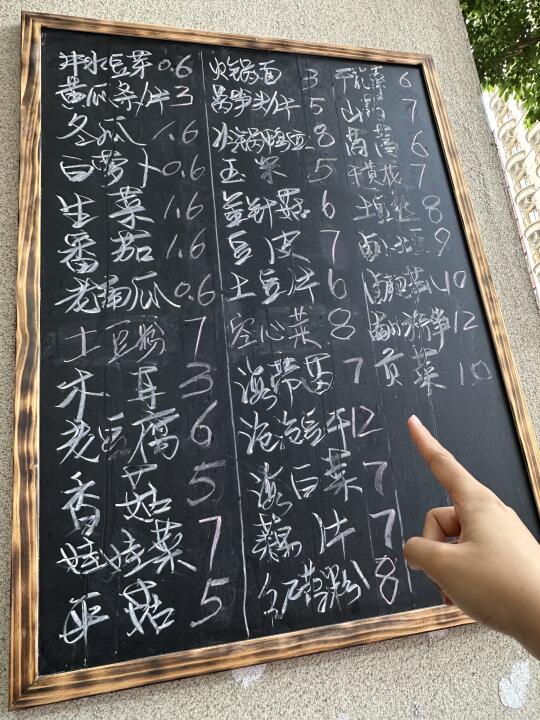 冲水豆芽 0.6
黄瓜条/片 3
冬瓜 1.6
白萝卜 0.6
生菜 1.6
番茄 1.6
老南瓜 0.6
土豆粉 7
木耳 3
老豆腐 6
香菇 5
娃娃菜 7
平菇 5
火锅面 3
莴笋头/片 5
8
玉米 5
金针菇 6
豆皮 7
土豆片 6
空心菜 8
海带苗 7
泡泡豆干 12
海白菜 7
藕片 7
红苕粉 8
6
山药 7
6
干黄花 7
土豆丝 8
9
10
12
贡菜 10